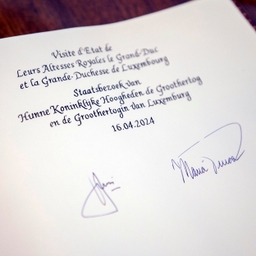 Visite d'Etat de
Leurs Altesses Royales le Grand-Duc
et la Grande-Duchesse de Luxembourg
Staatsbezoek van
Hunne Koninklijke Hoogheden de Groothertog
en de Groothertogin van Luxemburg
16.04.2024
Maria Teresa